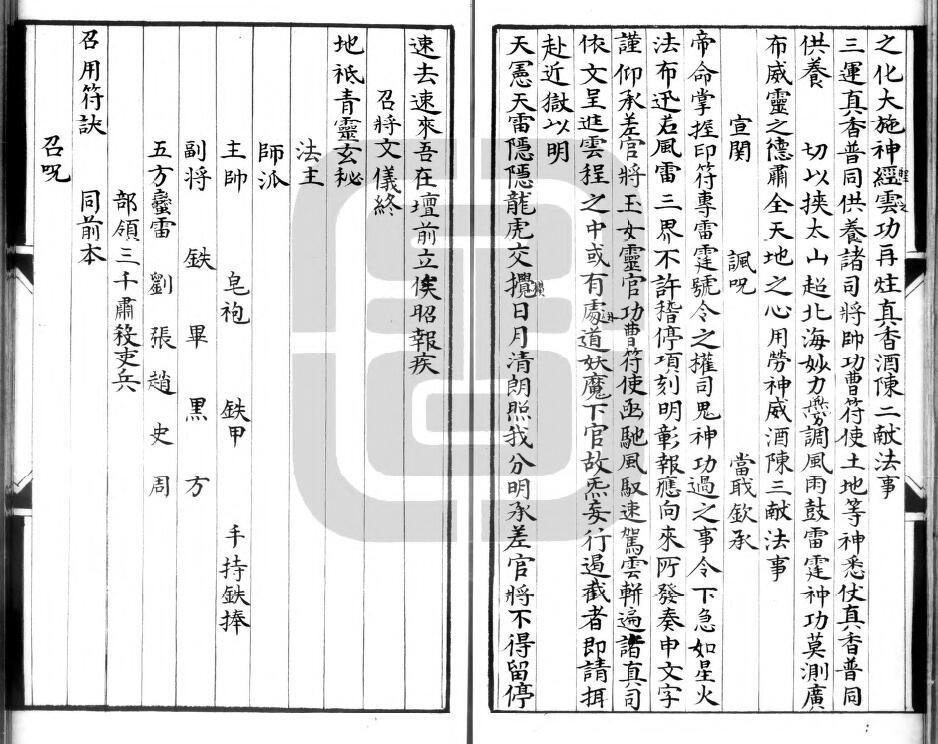 之化大施神經雲功再炷真香酒陳二献法事
三運真香普同供養諸司將帥功曹符使土地等神悉仗真香普同
供養　切以挾太山超北海妙力無芳調風雨鼓雷霆神功莫測廣
布威靈之德肅全天地之心用勞神威酒陳三献法事
宣関　諷呪　當戢欽承
帝命掌握印符專雷霆號令之權司鬼神功過之事令下急如星火
法布迅若風雷三界不許稽停項刻明彰報應向來所發奏申文字
謹仰承差官將玉女靈官功曹符使亟馳風馭速駕雲軿遍諸真司
依文呈進雲程之中或有處道妖魔下官故炁妄行遏截者即請揖
赴近獄以明
天憲天雷隱隱龍虎交攪日月清朗照我分明承差官將不得留停
速去速來吾在壇前立俟昭報疾
召將文儀終
地祇青靈玄秘
法主
師派
主帥　皂袍　鉄甲　手持鉄捧
副将　鉄　畢　黒　方
五方蠻雷　劉　張　趙　史　周
部領三千肅殺吏兵
召用符訣　同前本
召呪